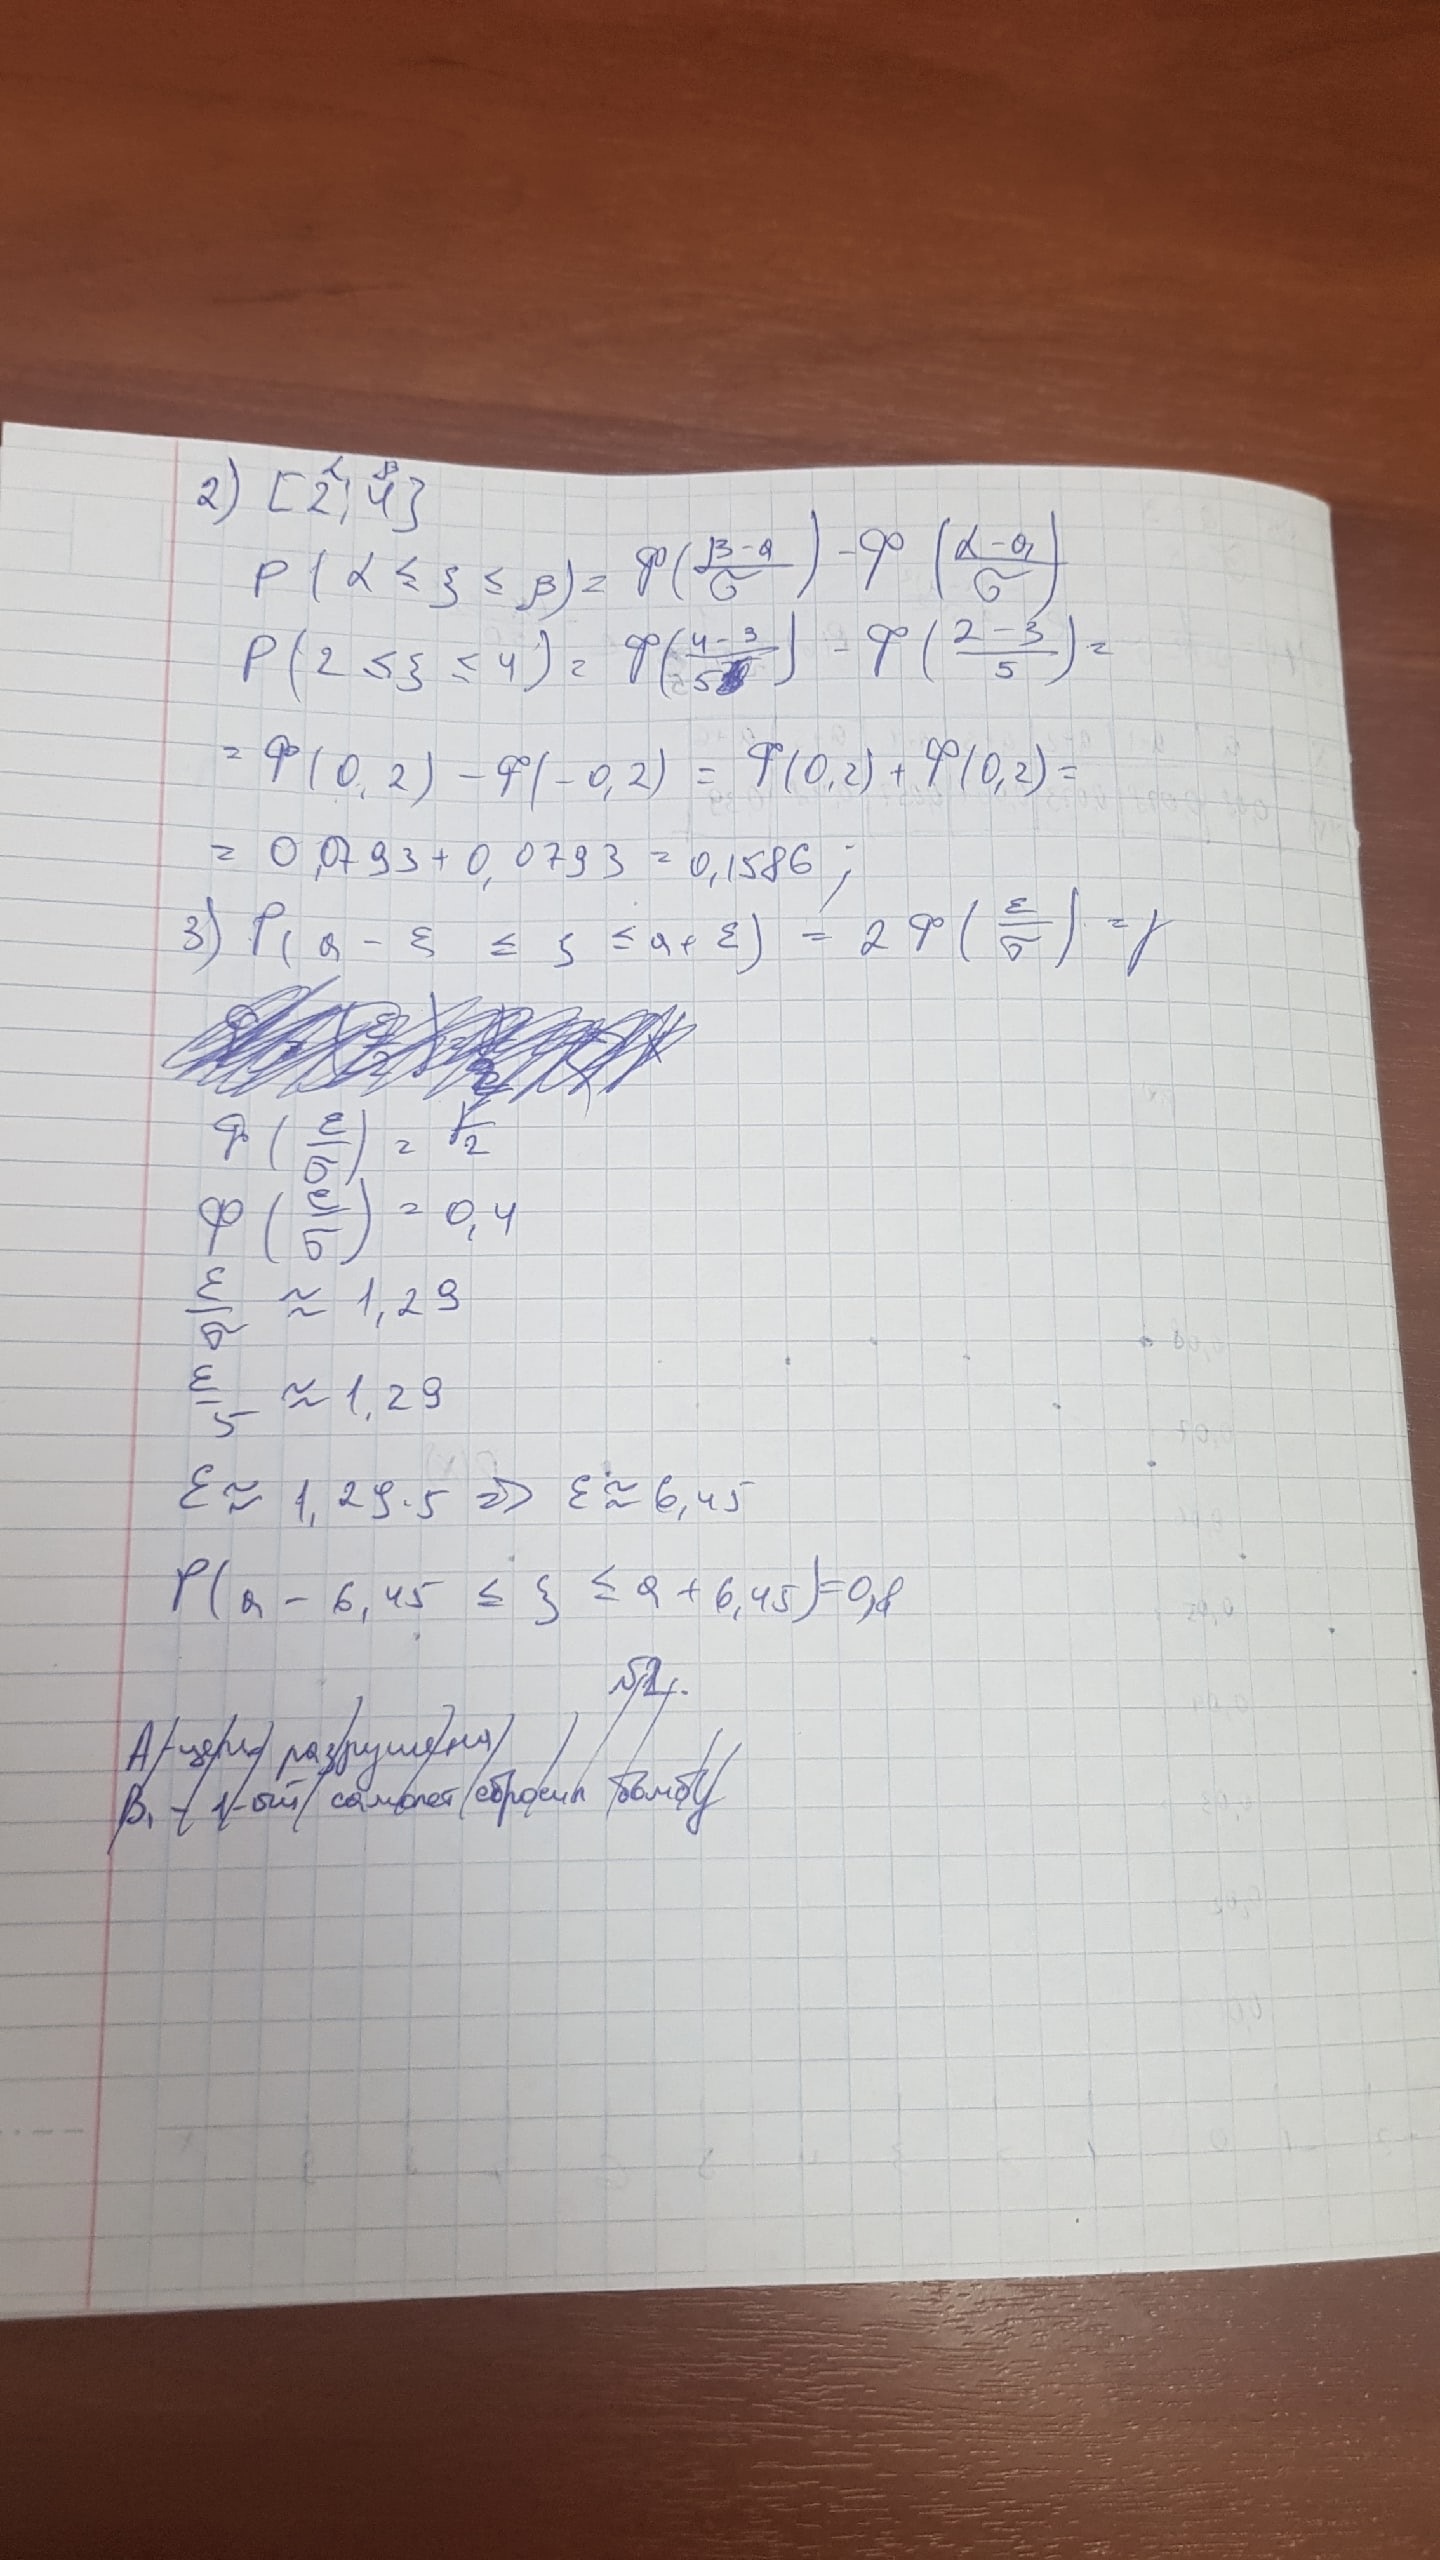 2) [2; 4]
α β
P(α ≤ ξ ≤ β) = Φ((β-a)/σ) - Φ((α-a)/σ)
P(2 ≤ ξ ≤ 4) = Φ((4-3)/5) - Φ((2-3)/5) =
= Φ(0,2) - Φ(-0,2) = Φ(0,2) + Φ(0,2) =
= 0,0793 + 0,0793 = 0,1586;
3) P(a - ε ≤ ξ ≤ a + ε) = 2Φ(ε/σ) = γ
Φ(ε/σ) = γ/2
Φ(ε/σ) = 0,4
ε/σ ≈ 1,29
ε/5 ≈ 1,29
ε ≈ 1,29·5 => ε ≈ 6,45
P(a - 6,45 ≤ ξ ≤ a + 6,45) = 0,8
№2.
A - цель разрушена
B₁ - 1-ый самолет сбросил бомбу